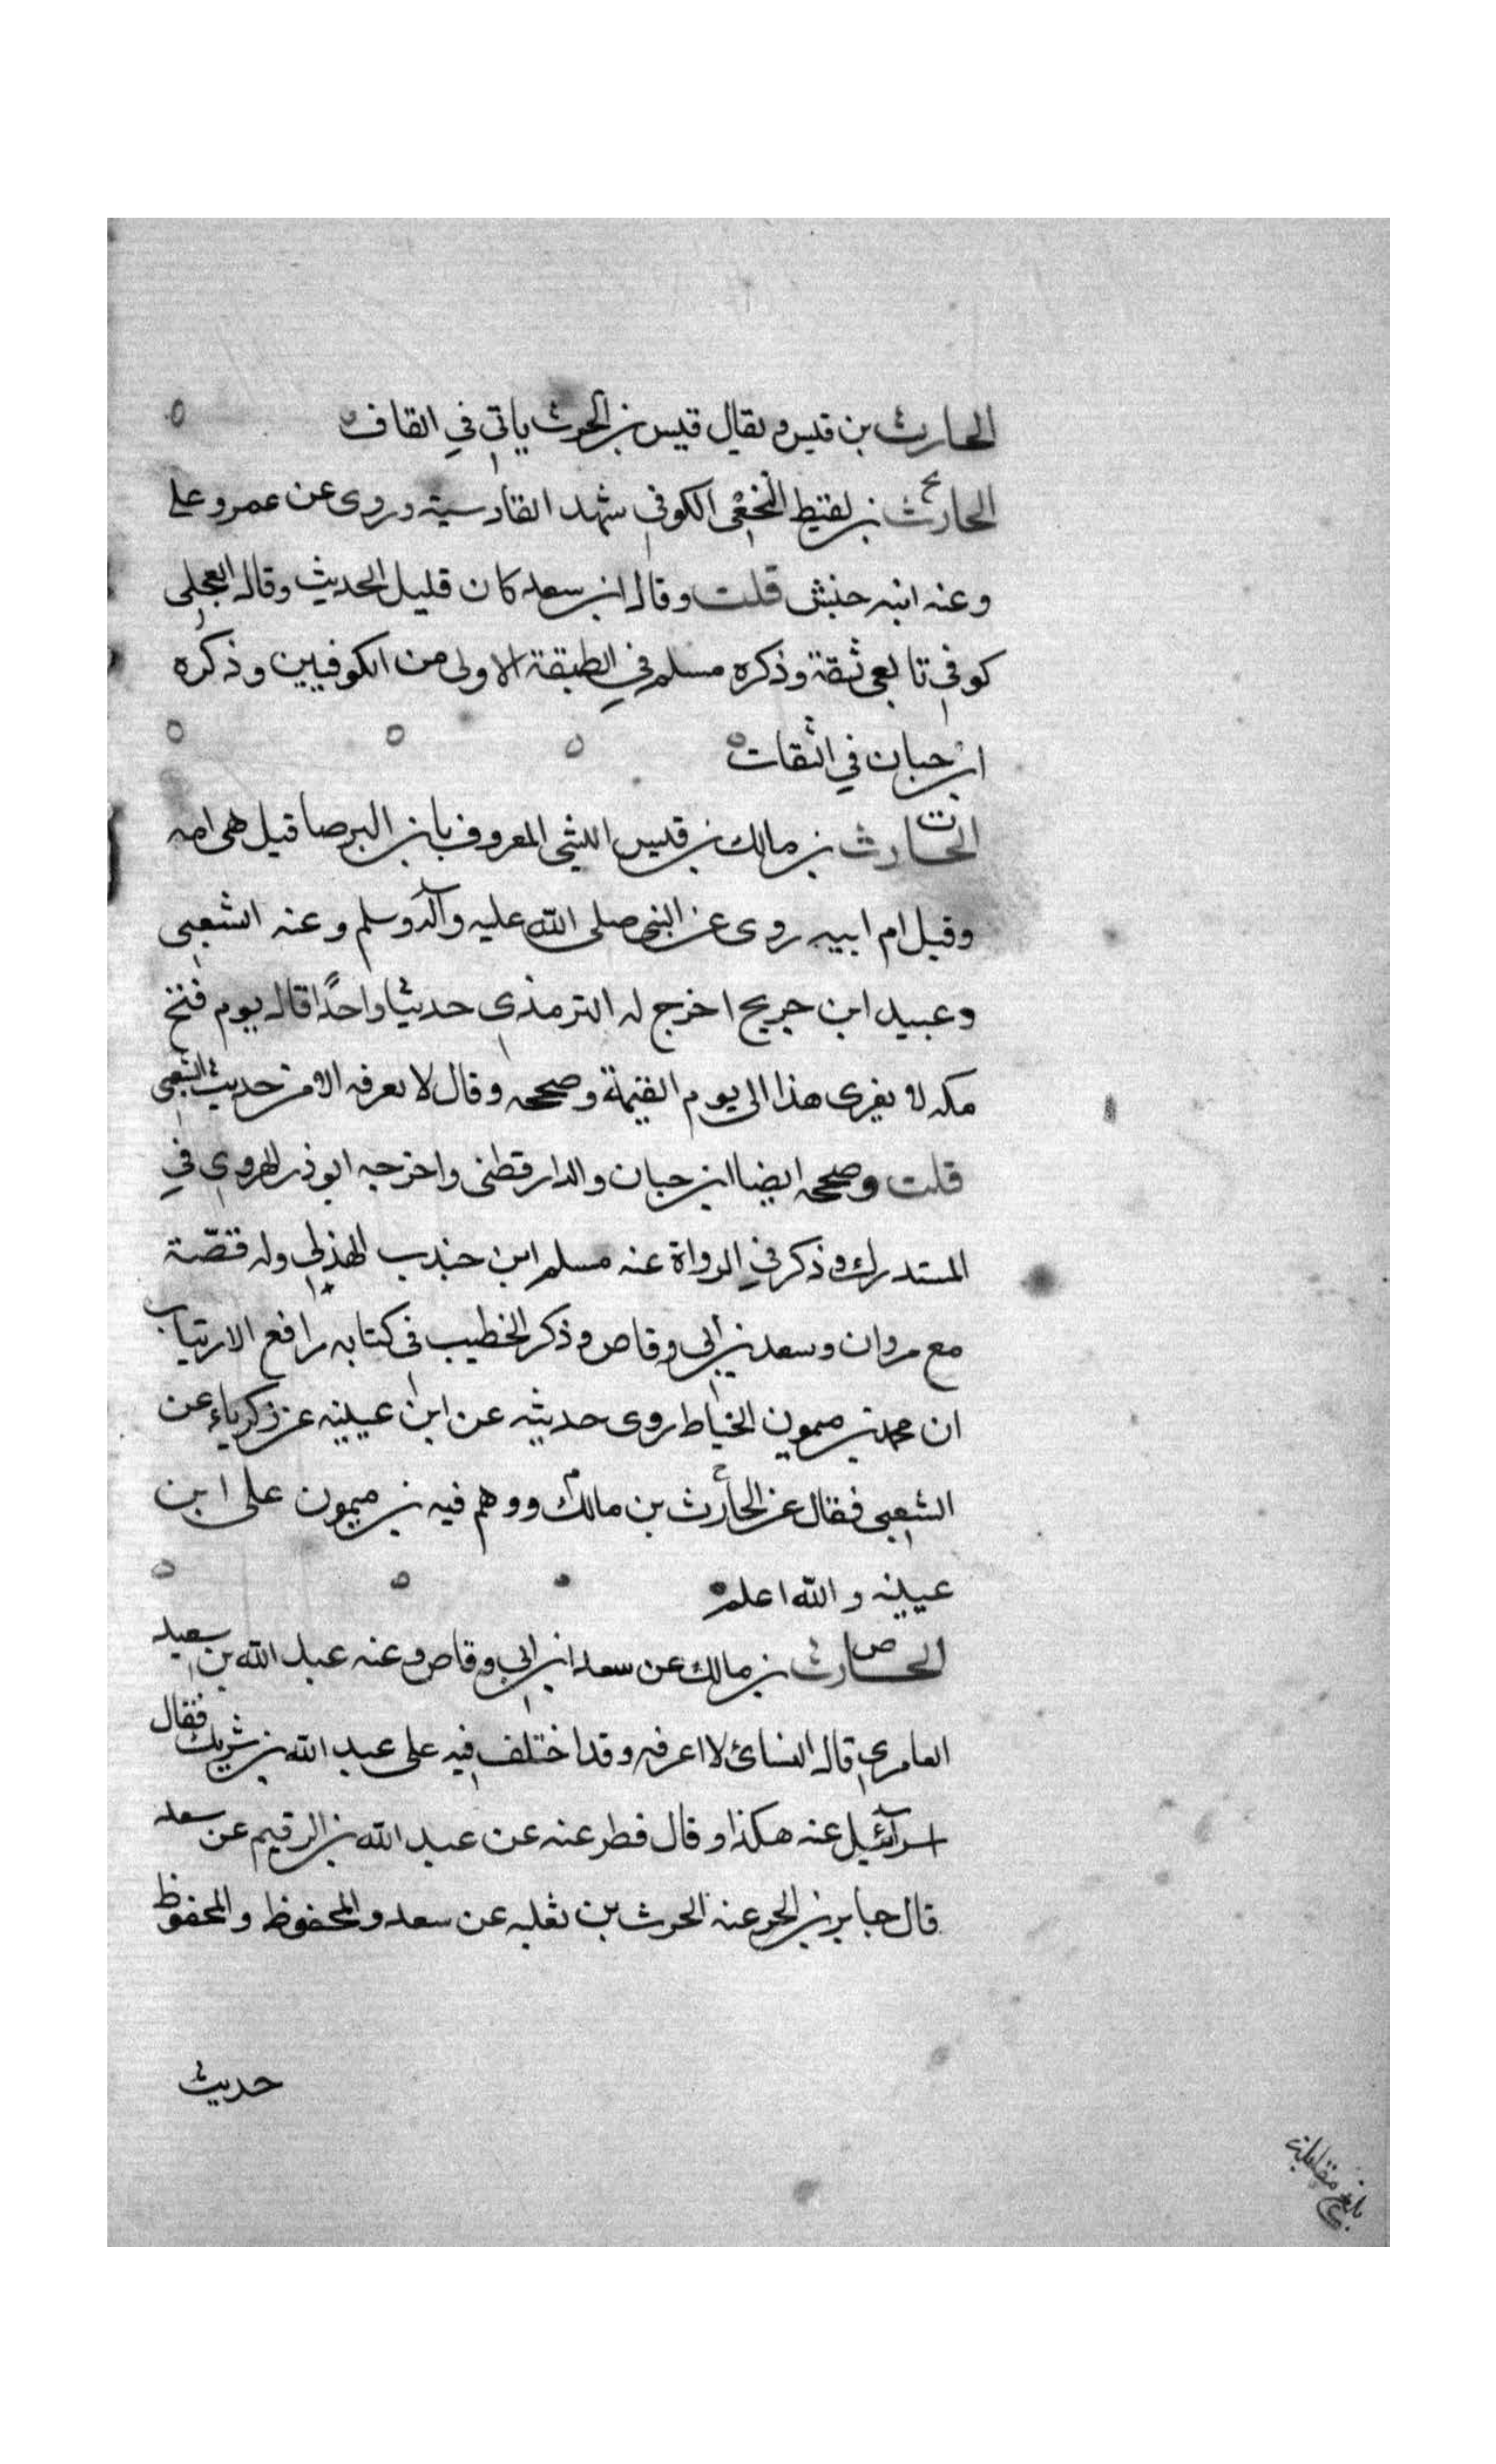 الحارث بن قيس ويقال قيس بن الحرث ياتي في القاف
الحارث بن لقيط النخعي الكوفي شهد القادسية وروى عن عمر وعلي
وعنه ابنه حنش قلت وقال ابن سعد كان قليل الحديث وقال العجلي
كوفي تابعي ثقة وذكره مسلم في الطبقة الاولى من الكوفيين وذكره
ابن حبان في الثقات
ت
الحارث بن مالك بن قيس الليثي المعروف بابن البرصا قيل هي امه
وقيل ام ابيه روى عن النبي صلى الله عليه وآله وسلم وعنه الشعبي
وعبيد ابن جريج اخرج له الترمذي حديثا واحدًا قال يوم فتح
مكه لا يغزى هذا الى يوم القيمة وصححه وقال لا نعرفه الا من حديث الشعبي
قلت وصححه ايضا ابن حبان والدارقطني واخرجه ابو ذر الهروي في
المستدرك وذكر في الرواة عنه مسلم ابن جندب الهذلي وله قصّة
مع مروان وسعد بن ابي وقاص وذكر الخطيب في كتابه رافع الارتياب
ان محمد بن ميمون الخياط روى حديثه عن ابن عيينه عن زكرياء عن
الشعبي فقال عن الحارث بن مالك ووهم فيه بن ميمون على ابن
عيينه والله اعلم
ص
الحارث بن مالك عن سعد ابن ابي وقاص وعنه عبد الله بن سعيد
العامري قال النسائ لا اعرفه وقد اختلف فيه على عبد الله بن شريك فقال
اسرآئيل عنه هكذا وقال فطر عنه عن عبد الله بن الرقيم عن سعد
قال جابر بن الحر عنه الحرث بن ثعلبه عن سعد والمحفوظ والمحفوظ
حديث
بلغ مقابلة